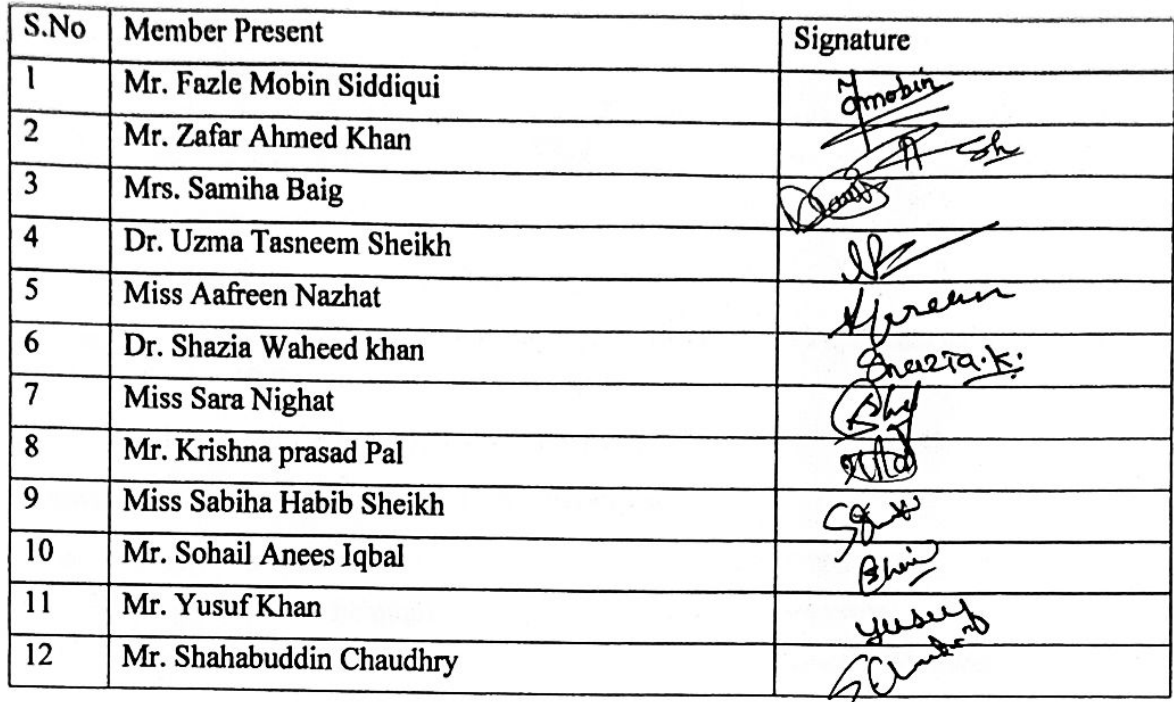 S.No Member Present Signature
1 Mr. Fazle Mobin Siddiqui fmobin
2 Mr. Zafar Ahmed Khan
3 Mrs. Samiha Baig
4 Dr. Uzma Tasneem Sheikh
5 Miss Aafreen Nazhat Afreen
6 Dr. Shazia Waheed khan Shazia.K.
7 Miss Sara Nighat
8 Mr. Krishna prasad Pal
9 Miss Sabiha Habib Sheikh
10 Mr. Sohail Anees Iqbal
11 Mr. Yusuf Khan yusuf
12 Mr. Shahabuddin Chaudhry